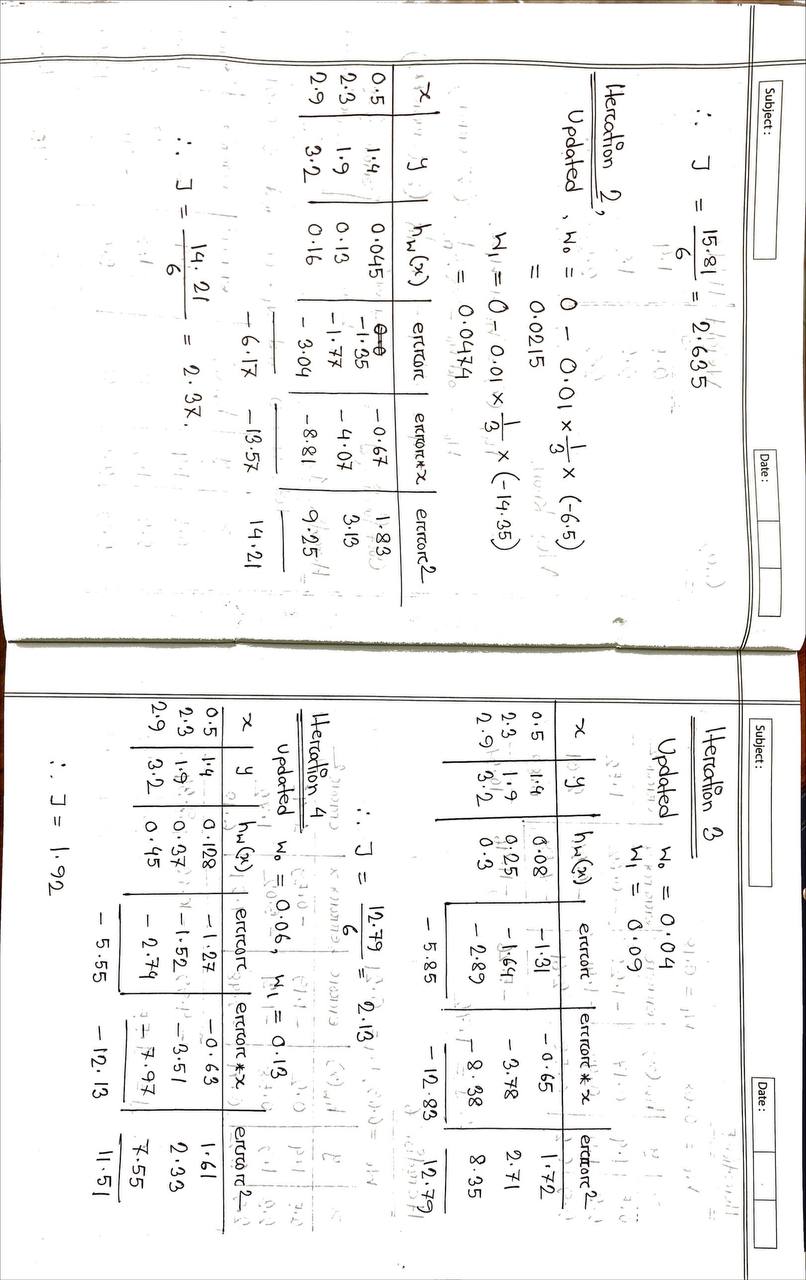 Subject :
Date :
∴ J = 15.81/6 = 2.635
Itercation 2,
Updated, W₀ = 0 - 0.01 × 1/3 × (-6.5)
= 0.0215
W₁ = 0 - 0.01 × 1/3 × (-14.35)
= 0.0474
x y hw(x) ercrorc ercrorc*x ercrorc2
0.5 1.4 0.045 -1.35 -0.67 1.83
2.3 1.9 0.13 -1.77 -4.07 3.13
2.9 3.2 0.16 -3.04 -8.81 9.25
-6.17 -13.57 14.21
∴ J = 14.21/6 = 2.37.
Subject :
Date :
Itercation 3
Updated W₀ = 0.04
W₁ = 0.09
x y hw(x) ercrorc ercrorc*x ercrorc2
0.5 1.4 0.08 -1.31 -0.65 1.72
2.3 1.9 0.25 -1.64 -3.78 2.71
2.9 3.2 0.3 -2.89 -8.38 8.35
-5.85 -12.83 12.79
∴ J = 12.79/6 = 2.13
Itercation 4
updated W₀ = 0.06, W₁ = 0.13
x y hw(x) ercrorc ercrorc*x ercrorc2
0.5 1.4 0.128 -1.27 -0.63 1.61
2.3 1.9 0.37 -1.52 -3.51 2.33
2.9 3.2 0.45 -2.74 -7.97 7.55
-5.55 -12.13 11.51
∴ J = 1.92